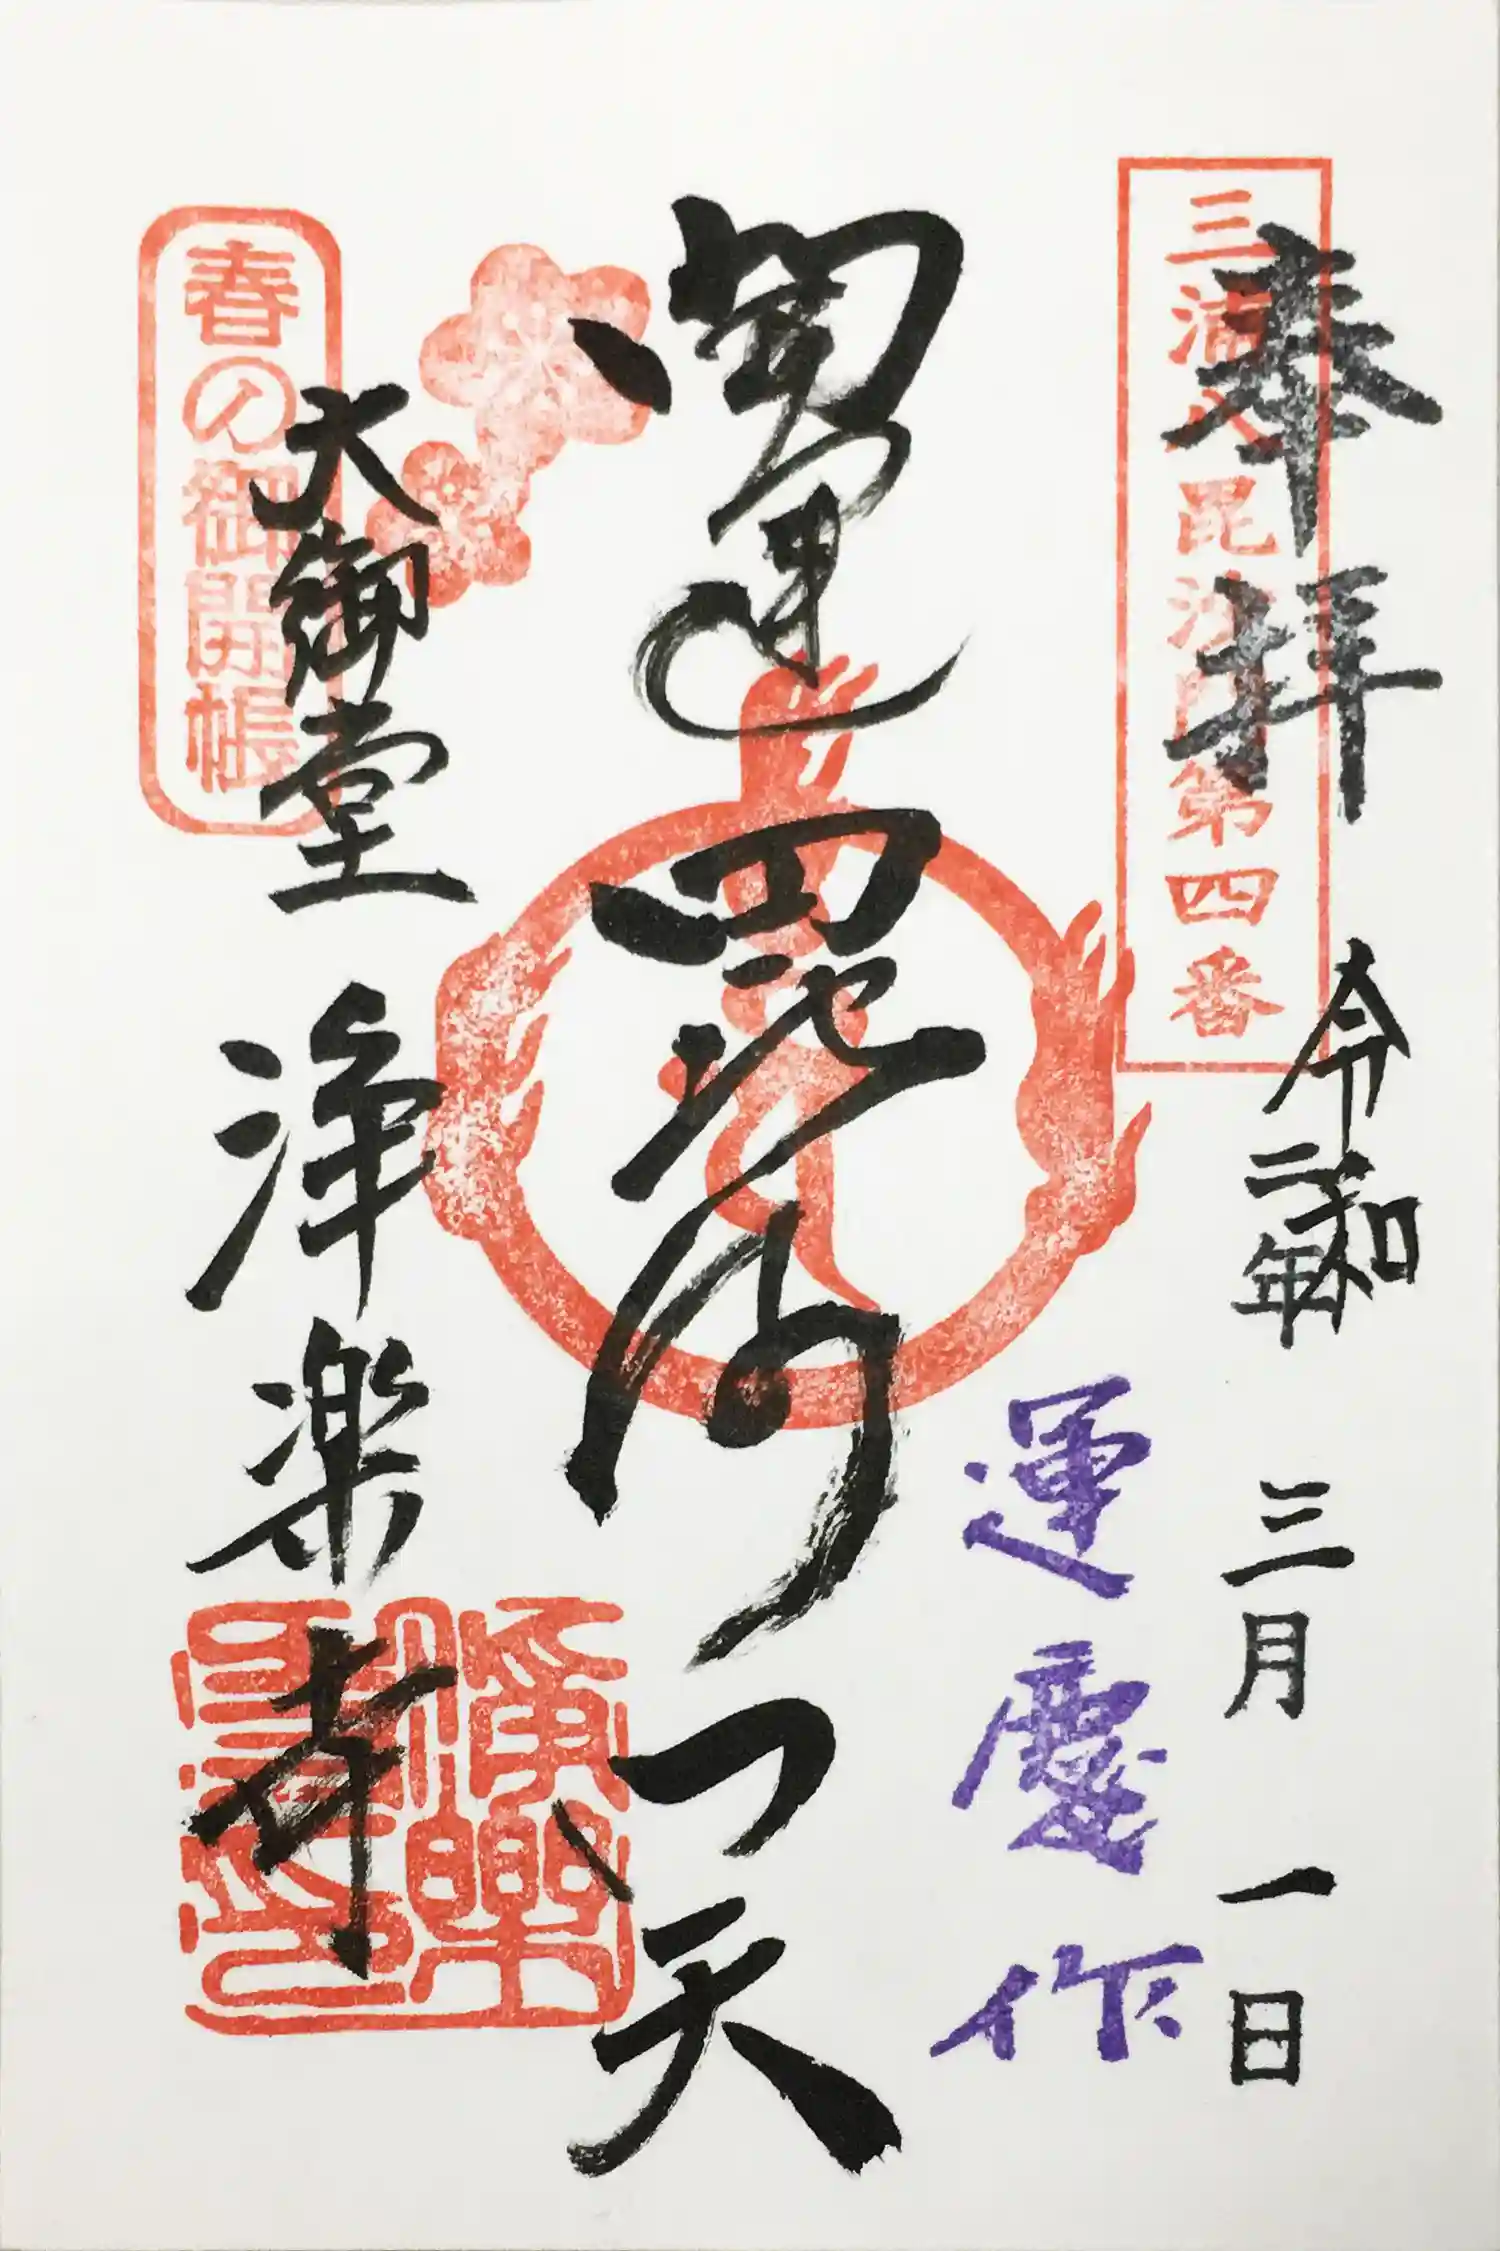 奉拝
三浦八毘沙門第四番
令和二年 三月 一日
運慶作
開運 毘沙門天
大御堂 浄楽寺
春の御開帳